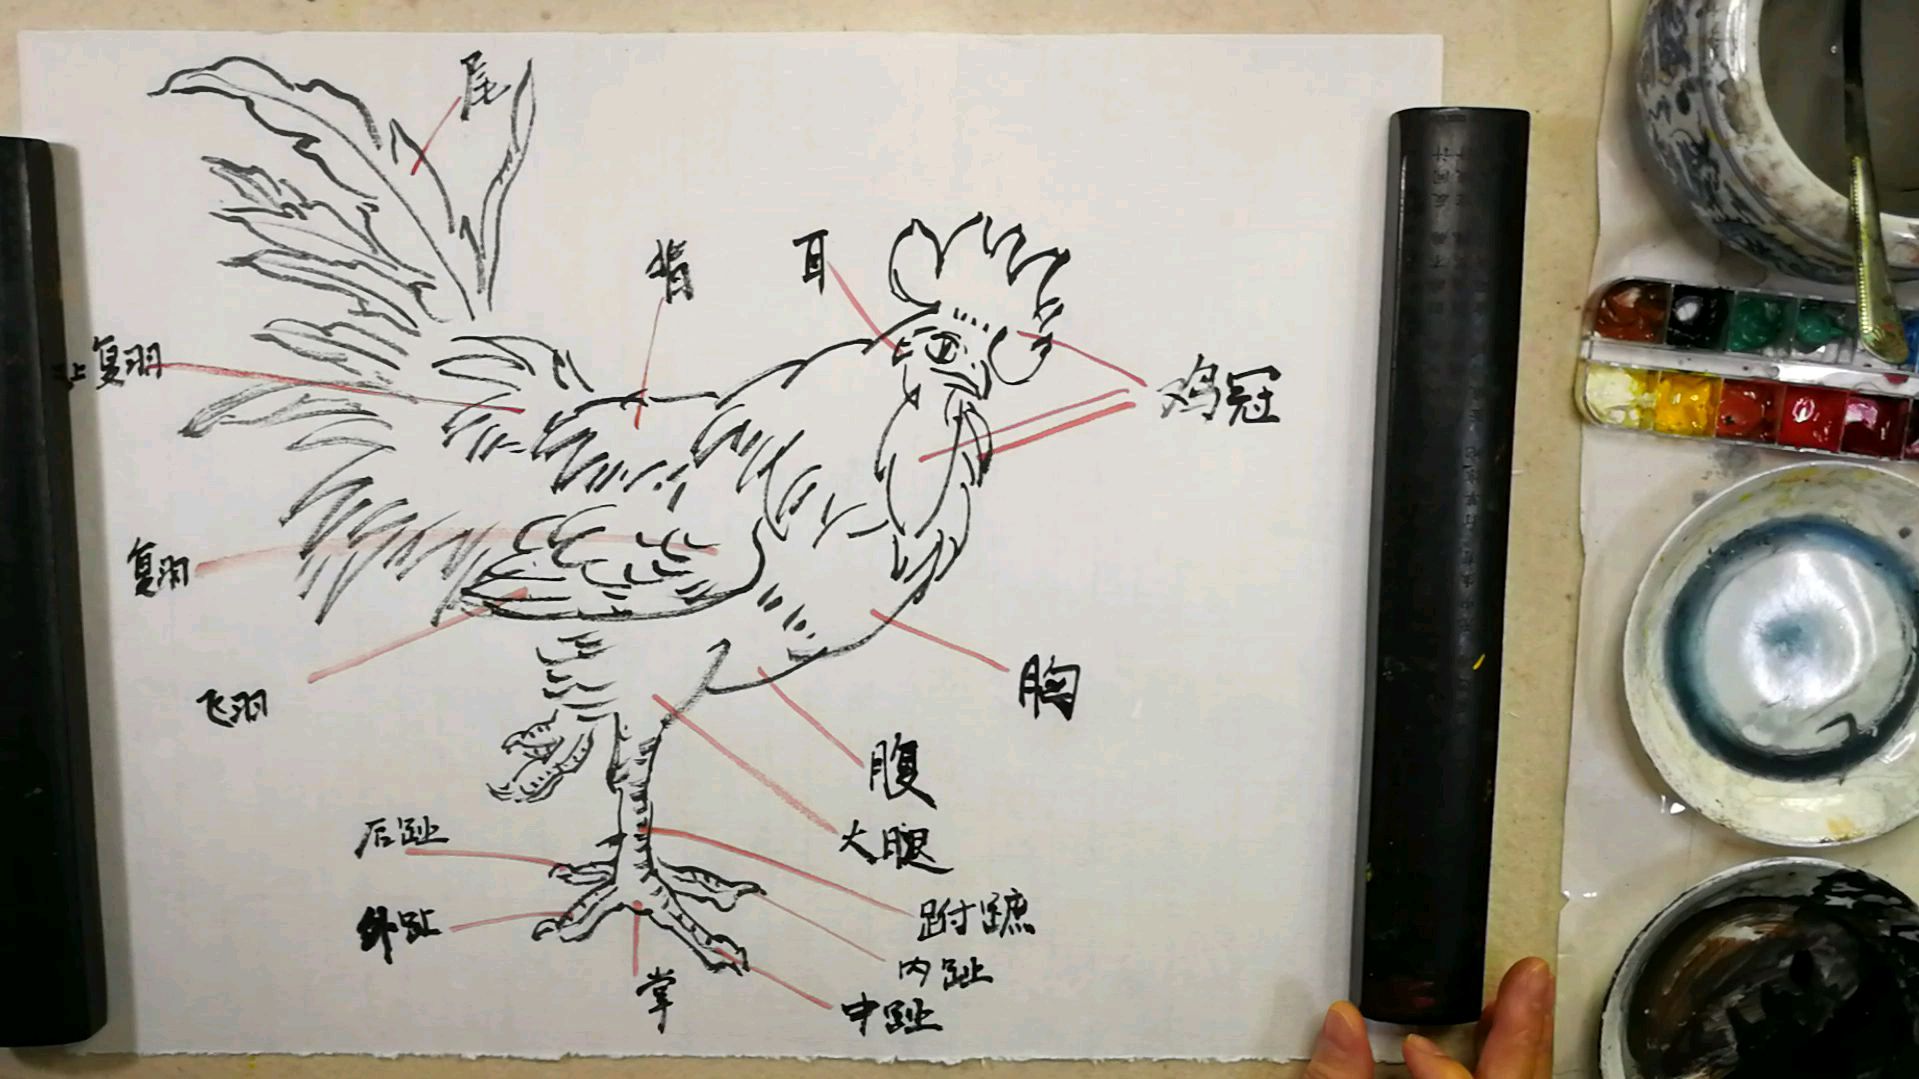 尾
背
耳
上复羽
鸡冠
复羽
飞羽
胸
腹
大腿
后趾
跗蹠
外趾
内趾
掌
中趾